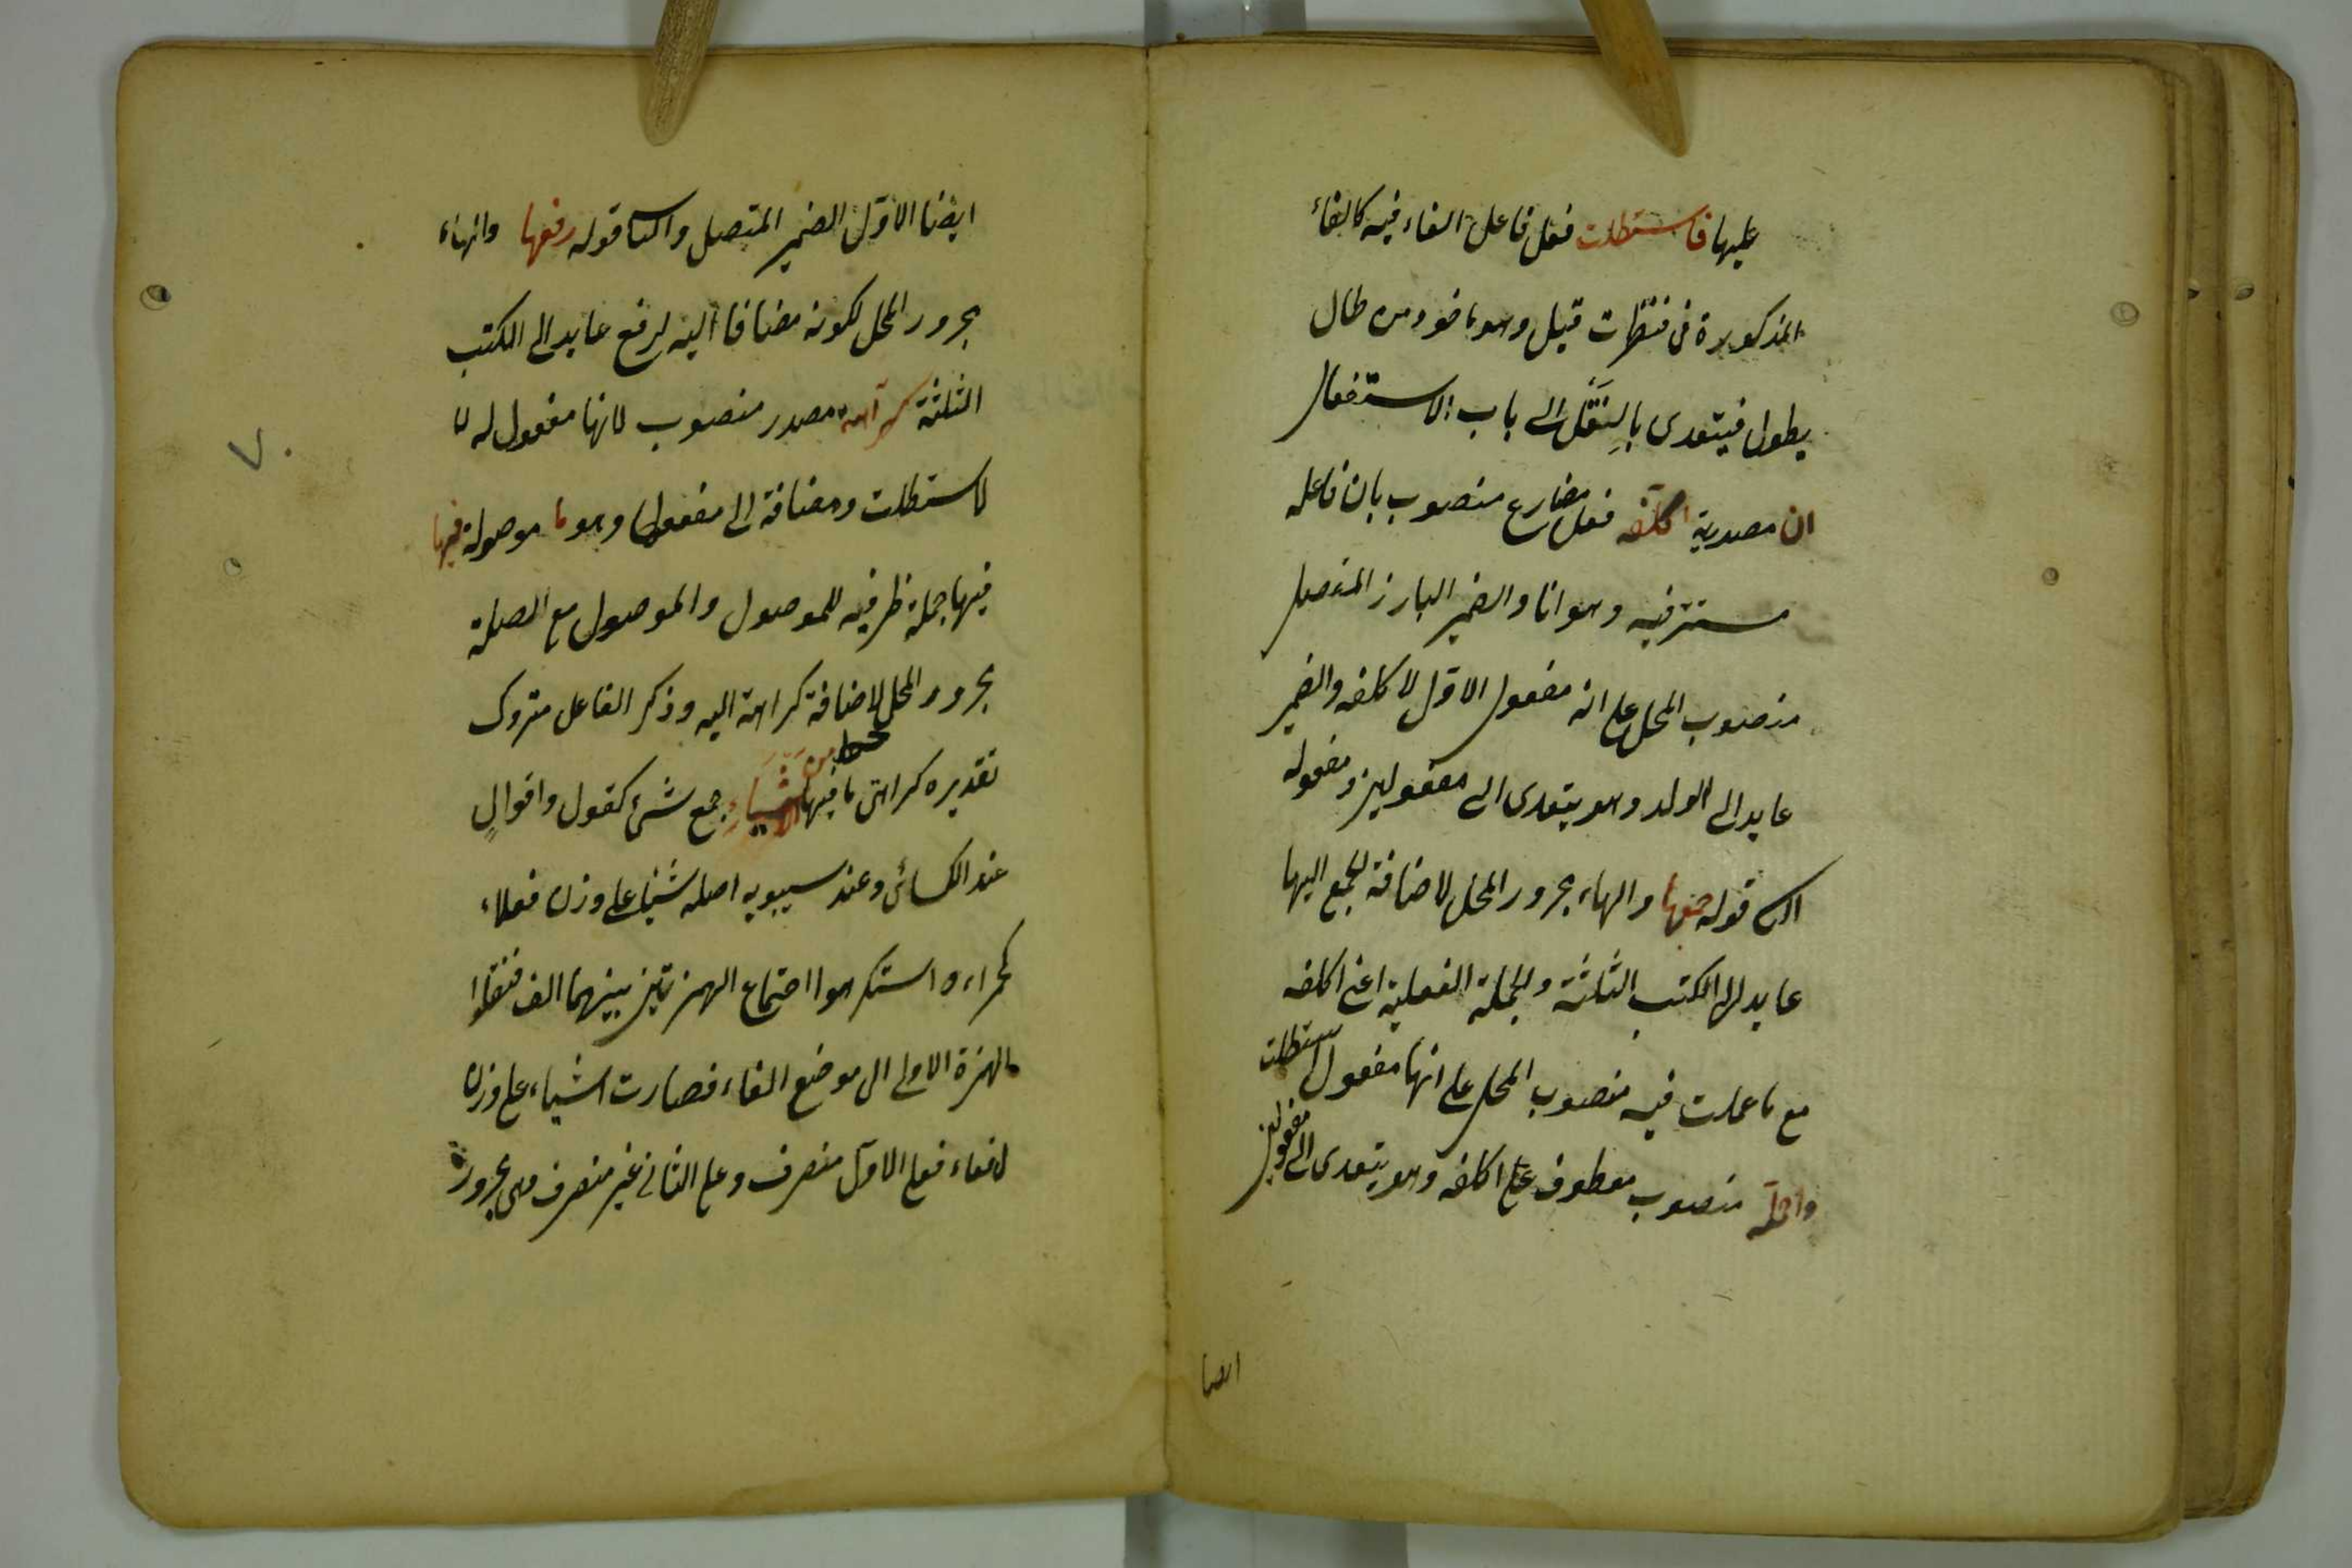 عليها فاستطلت فعل فاعل الفاء فيه كالفاء
المذكورة فى فنظرت قيل وهو ماخوذ من طال
يطول فيتعدى بالنَقل الى باب الاستفعال
ان مصدرية اكلفه فعل مضارع منصوب بان فاعله
مستتر فيه وهو انا والضمير البارز المتصل
منصوب المحل على انه مفعول الاوّل لاكلفه والضمير
عايد الى الولد وهو يتعدى الى مفعولين ومفعوله
الثانى قوله جمعها والهاء مجرور المحل لاضافة الجمع اليها
عايد الى الكتب الثلثة والجملة الفعلية اعنى اكلفه
مع ما عملت فيه منصوب المحل على انها مفعول استطلت
واحمله منصوب معطوف على اكلفه وهو يتعدى الى مفعولين
ايضا
ايضا الاوّل الضمير المتصل والثانى قوله رفعها والهاء
مجرور المحل لكونه مضافا اليه لرفع عايد الى الكتب
الثلثة كراهة مصدر منصوب لانها مفعول له لا
لاستطلت ومضافة الى مفعولها وهو ما موصولة فيها
فيها جملة ظرفيه للموصول والموصول مع الصلة
مجرور المحل لاضافة كراهة اليه وذكر الفاعل متروك
تقديره كراهتى ما فيها من الاشياء جمع شئ كقول واقوالٍ
عند الكسائى وعند سيبويه اصله شيئاء على وزن فعلاء
كحمراء واستكرهوا اجتماع الهمزتين بينهما الف فنقلوا
الهمزة الاولى الى موضع الفاء فصارت اشياء على وزن
لفعاء فعلى الاوّل منصرف وعلى الثانى غير منصرف وهى مجرور
٧